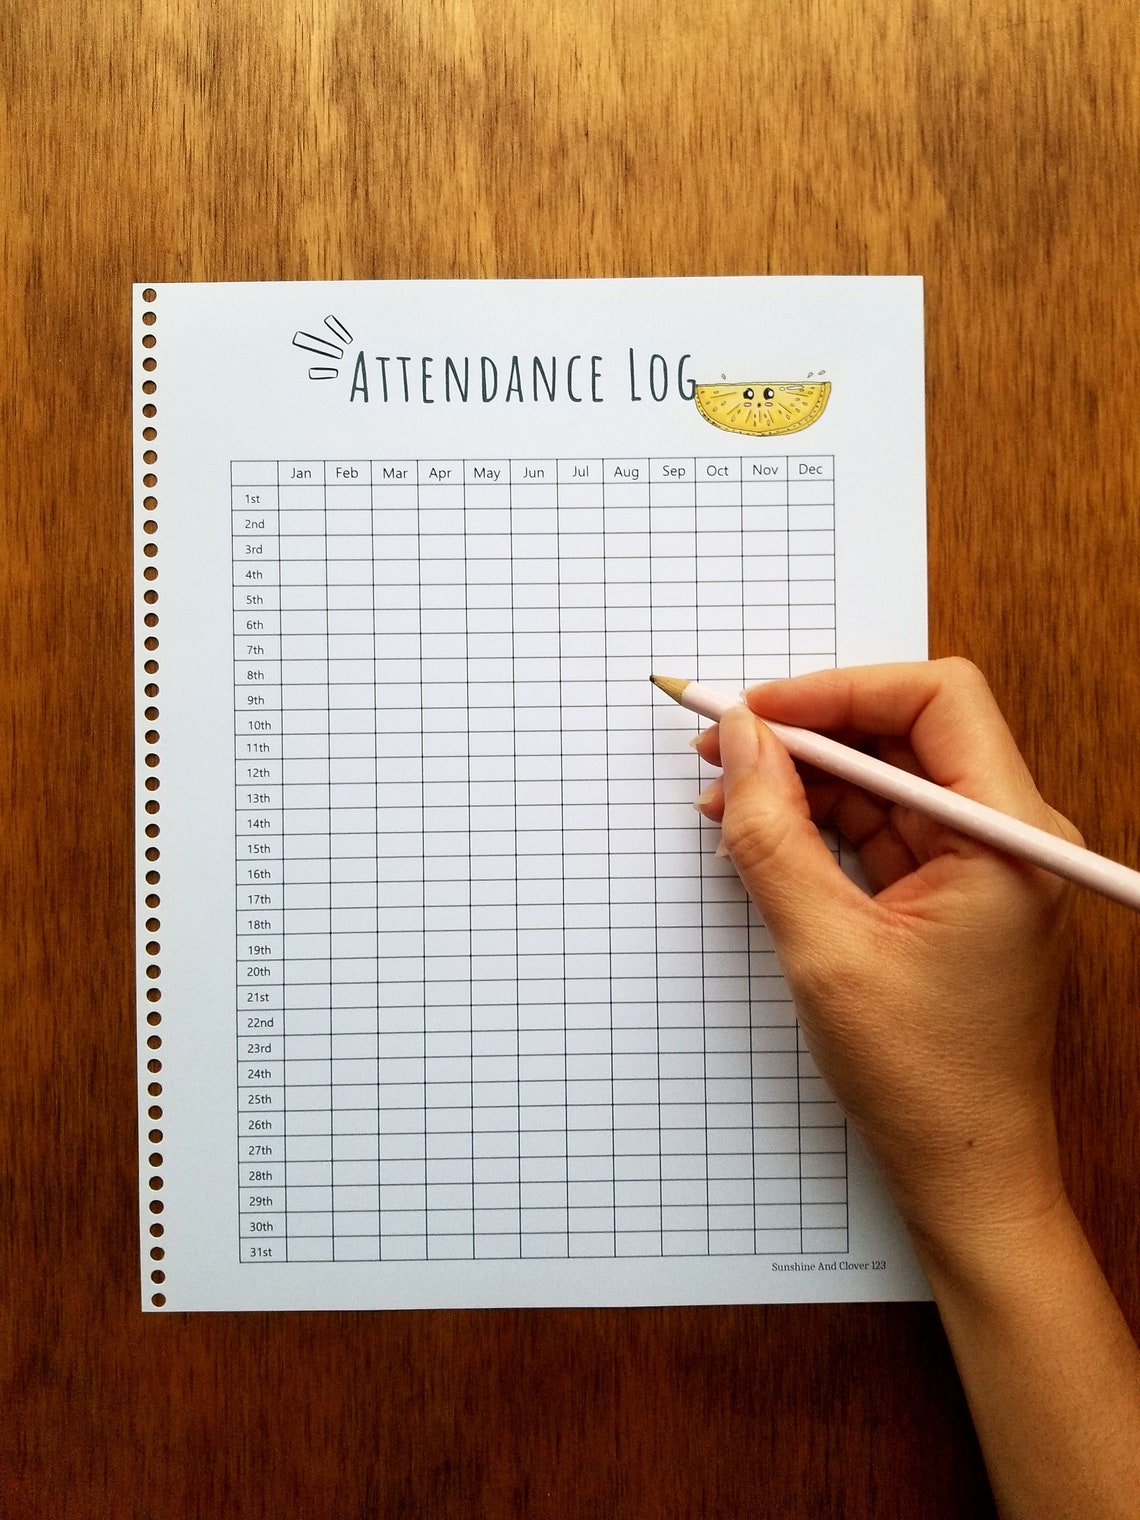 Attendance Log
Jan Feb Mar Apr May Jun Jul Aug Sep Oct Nov Dec
1st
2nd
3rd
4th
5th
6th
7th
8th
9th
10th
11th
12th
13th
14th
15th
16th
17th
18th
19th
20th
21st
22nd
23rd
24th
25th
26th
27th
28th
29th
30th
31st
Sunshine And Clover 123